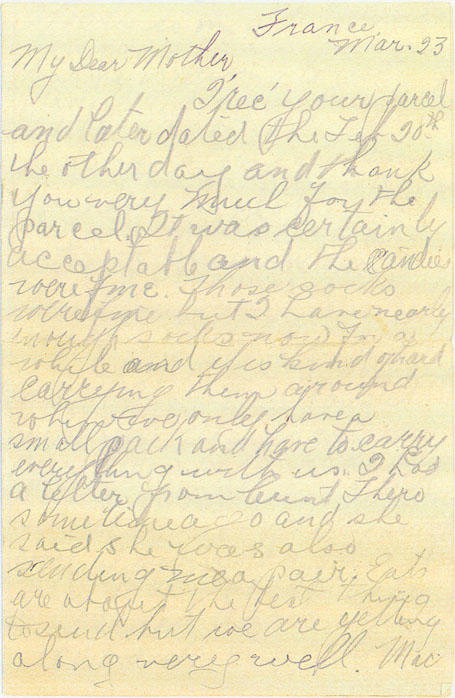 France
Mar. 23
My Dear Mother
I rec' your parcel
and later dated the Feb 20th
the other day and thank
you very much for the
parcel. It was certainly
acceptable and the candies
were fine. Those socks
were fine but I have nearly
enough socks now for a
while and it is kind of hard
carrying them around
when we only have a
small pack and have to carry
everything with us. I had
a letter from Aunt Thero
sometime ago and she
said she was also
sending me a pair. Eats
are about the best thing
to send but we are getting
along very well. Mac